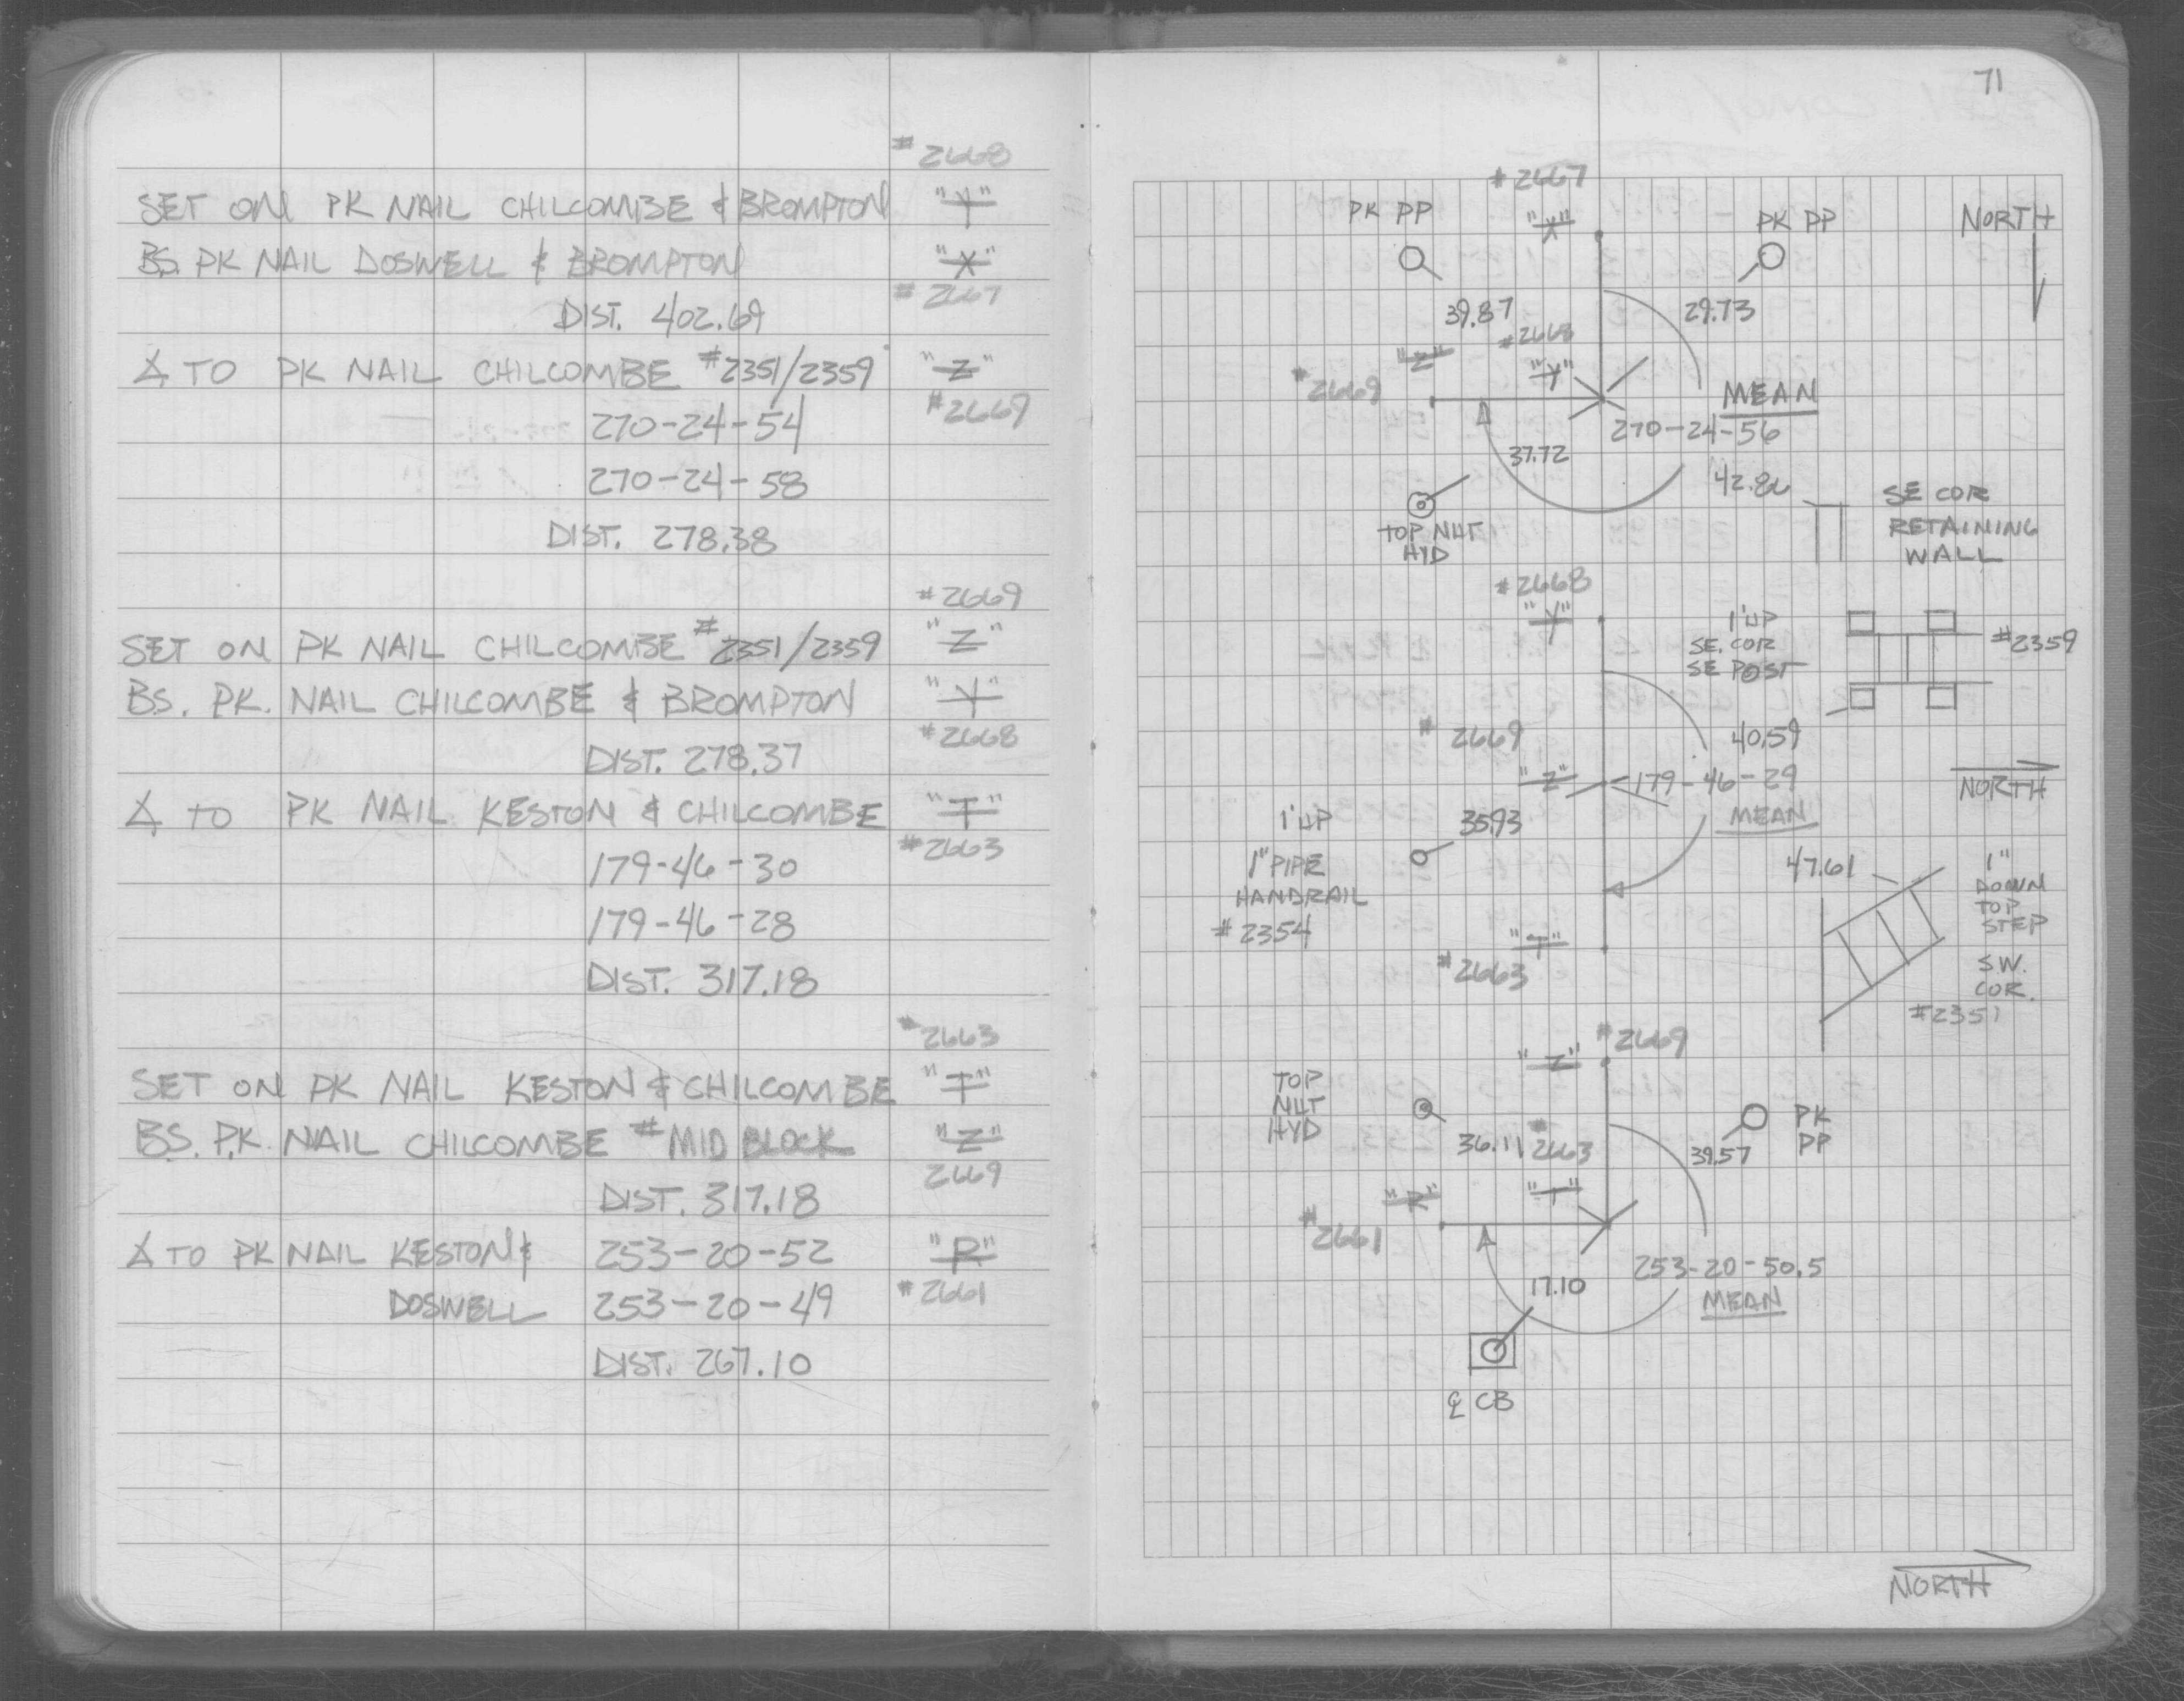 #2668
SET ON PK NAIL CHILCOMBE & BROMPTON "Y"
BS. PK NAIL DOSWELL & BROMPTON "X"
DIST. 402.69 #2667
∡ TO PK NAIL CHILCOMBE #2351/2359 "Z"
270-24-54 #2669
270-24-58
DIST. 278.38
#2669
SET ON PK NAIL CHILCOMBE #2351/2359 "Z"
BS. PK. NAIL CHILCOMBE & BROMPTON "Y"
DIST. 278.37 #2668
∡ TO PK NAIL KESTON & CHILCOMBE "T"
179-46-30 #2663
179-46-28
DIST. 317.18
#2663
SET ON PK NAIL KESTON & CHILCOMBE "T"
BS. P.K. NAIL CHILCOMBE # MID BLOCK "Z"
DIST. 317.18 2669
∡ TO PK NAIL KESTON & 253-20-52 "R"
DOSWELL 253-20-49 #2661
DIST. 267.10
71
#2667
PK PP "X" PK PP NORTH
39.87 29.73
"Z" #2668
#2669 "Y" MEAN
270-24-56
37.72
42.86 SE COR
RETAINING
WALL
TOP NUT
HYD
#2668
"Y" 1' UP
SE. COR
SE POST #2359
#2669 40.59
"Z" 179-46-29 NORTH
MEAN
1' UP 35.93
1" PIPE
HANDRAIL
#2354
47.61 1"
DOWN
TOP
STEP
S.W.
COR.
#2351
"T"
#2663
"Z" #2669
TOP
NUT
HYD
PK
PP
36.11 #2663 39.57
"R" "T"
#2661
253-20-50.5
17.10 MEAN
℄ CB
NORTH